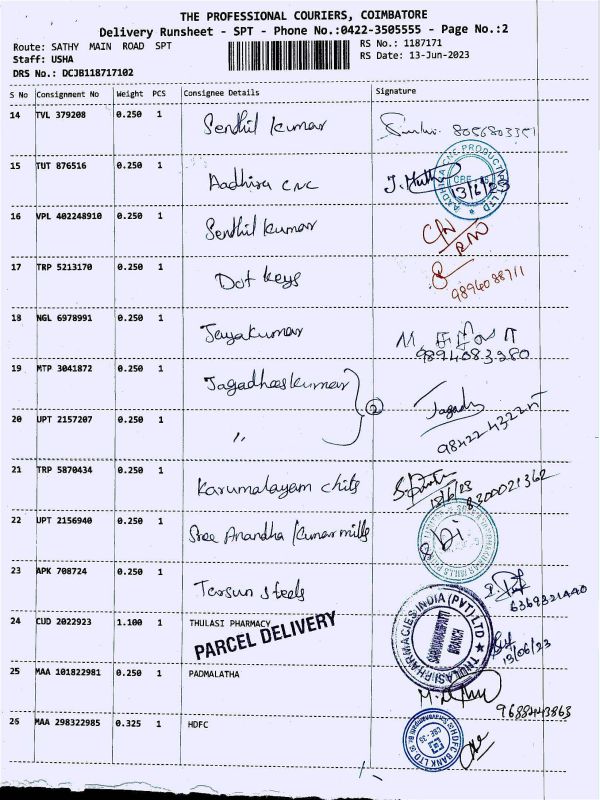 THE PROFESSIONAL COURIERS, COIMBATORE
Delivery Runsheet - SPT - Phone No.:0422-3505555 - Page No.:2
Route: SATHY MAIN ROAD SPT
RS No.: 1187171
Staff: USHA
RS Date: 13-Jun-2023
DRS No.: DCJB118717102
S No Consignment No Weight PCS Consignee Details Signature
14 TVL 379208 0.250 1 Senthil kumar 8056803351
15 TUT 876516 0.250 1 Aadhira cnc J. Muth 13/6/23
AADHIRA CNC PRODUCT PVT LTD
16 VPL 402248910 0.250 1 Senthil kumar
17 TRP 5213170 0.250 1 Dot keys
9894088711
18 NGL 6978991 0.250 1 Jayakumar
9894083280
19 MTP 3041872 0.250 1 Jagadheeskumar
20 UPT 2157207 0.250 1 〃 2 Jagadh
21 TRP 5870434 0.250 1 Karumalayam chits 8300021362
22 UPT 2156940 0.250 1 Sree Anandha kumar mills
23 APK 708724 0.250 1 Tarsun steels
24 CUD 2022923 1.100 1 THULASI PHARMACY
PARCEL DELIVERY
THULASI PHARMACIES INDIA (PVT) LTD
SARAVANAMPATTI BRANCH
13/06/23
25 MAA 101822981 0.250 1 PADMALATHA
9688443863
26 MAA 298322985 0.325 1 HDFC
HDFC BANK LTD
CBE-35